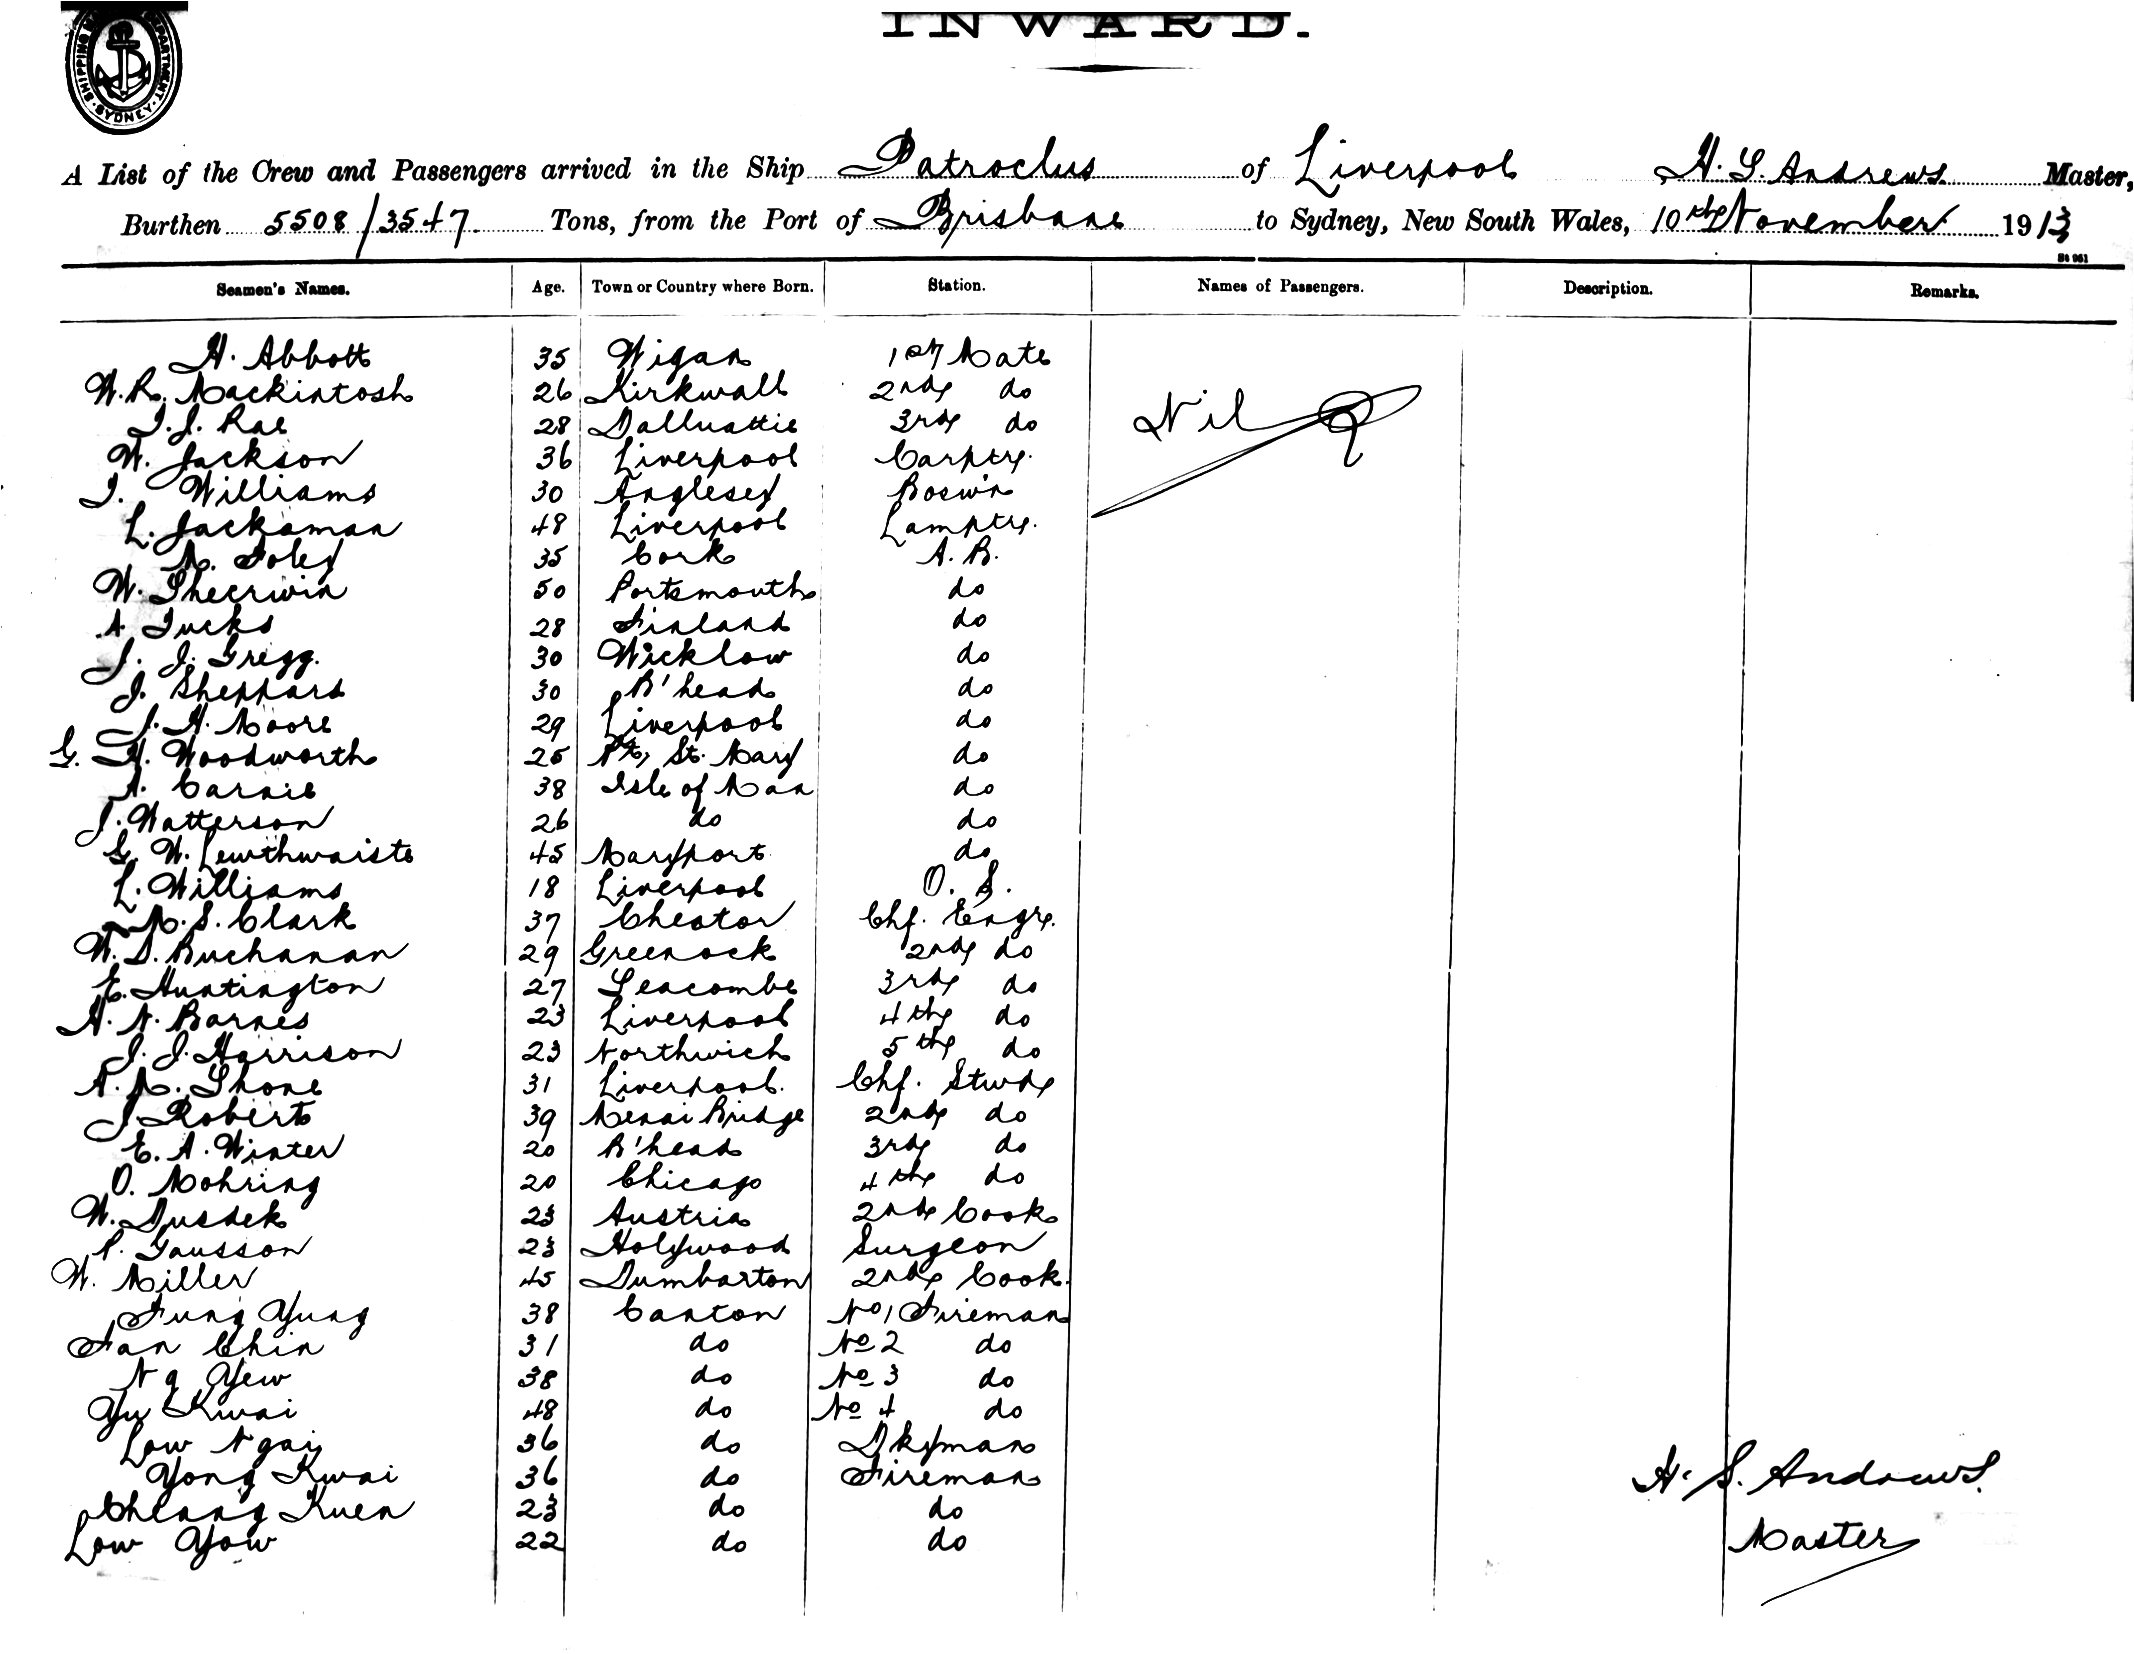 SHIPPING DEPARTMENT SYDNEY
INWARD.
A List of the Crew and Passengers arrived in the Ship Patroclus of Liverpool H. S. Andrews Master,
Burthen 5508/3547 Tons, from the Port of Brisbane to Sydney, New South Wales, 10th November 1913
St 961
Seamen's Names. Age. Town or Country where Born. Station. Names of Passengers. Description. Remarks.
H. Abbott 35 Wigan 1st Mate
W. R. Mackintosh 26 Kirkwall 2nd do
J. J. Rae 28 Dalluattie 3rd do Nil
W. Jackson 36 Liverpool Carptr.
J. Williams 30 Anglesey Bosw'n
L. Jackaman 48 Liverpool Lamptr.
M. Foley 35 Cork A. B.
W. Sheerwin 50 Portsmouth do
A Tucks 28 Finland do
J. J. Gregg. 30 Wicklow do
J. Sheppard 30 B'head do
J. H. Moore 29 Liverpool do
G. H. Woodworth 25 Pt. St. Mary do
A. Carnie 38 Isle of Man do
J. Watterson 26 do do
G. W. Lewthwaiste 45 Maryport do
L. Williams 18 Liverpool O. S.
M. S. Clark 37 Cheator Chf. Engr.
W. D. Buchanan 29 Greenock 2nd do
E. Huntington 27 Seacombe 3rd do
H. N. Barnes 23 Liverpool 4th do
J. J. Harrison 23 Northwich 5th do
A. M. Shone 31 Liverpool. Chf. Stwd
J. Roberts 39 Menai Bridge 2nd do
E. A. Winter 20 B'head 3rd do
O. Mohring 20 Chicago 4th do
W. Dussek 23 Austria 2nd Cook
P. Gausson 23 Holywood Surgeon
W. Miller 45 Dumbarton 2nd Cook.
Fung Yung 38 Canton No 1 Fireman
Fan Chin 31 do No 2 do
Ng Yew 38 do No 3 do
Yu Kwai 48 do No 4 do
Low Ngai 36 do Dkyman
Yong Kwai 36 do Fireman H. S. Andrews.
Cheang Kuen 23 do do
Low Yow 22 do do Master